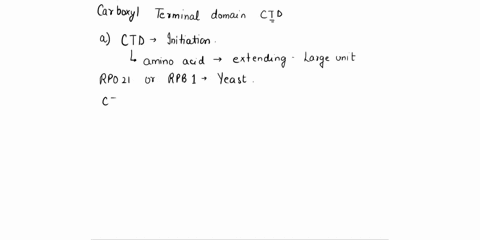 Carboxyl Terminal domain CTD
a) CTD → Initiation.
↳ amino acid → extending. Large unit
RPO21 or RPB1 → Yeast.
C-